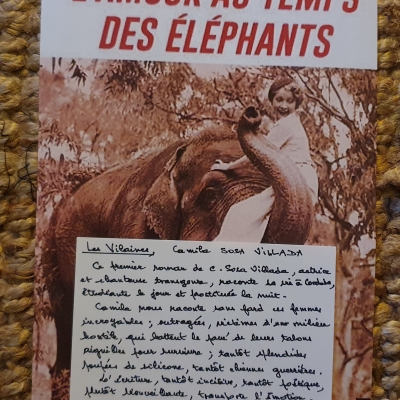 L'AMOUR AU TEMPS
DES ÉLÉPHANTS
Les Vilaines, Camila SOSA VILLADA
Ce premier roman de C. Sosa Villada, actrice
et chanteuse transgenre, raconte sa vie à Cordoba,
étudiante le jour et prostituée la nuit.
Camila nous raconte sans fard ces femmes
incroyables ; outragées, victimes d'un milieu
hostile, qui battent le pavé de leurs talons
aiguilles pour survivre ; tantôt splendides
poupées de silicone, tantôt chiennes guerrières.
L'écriture, tantôt incisive, tantôt poétique,
plutôt bouleversante, transporte l'émotion